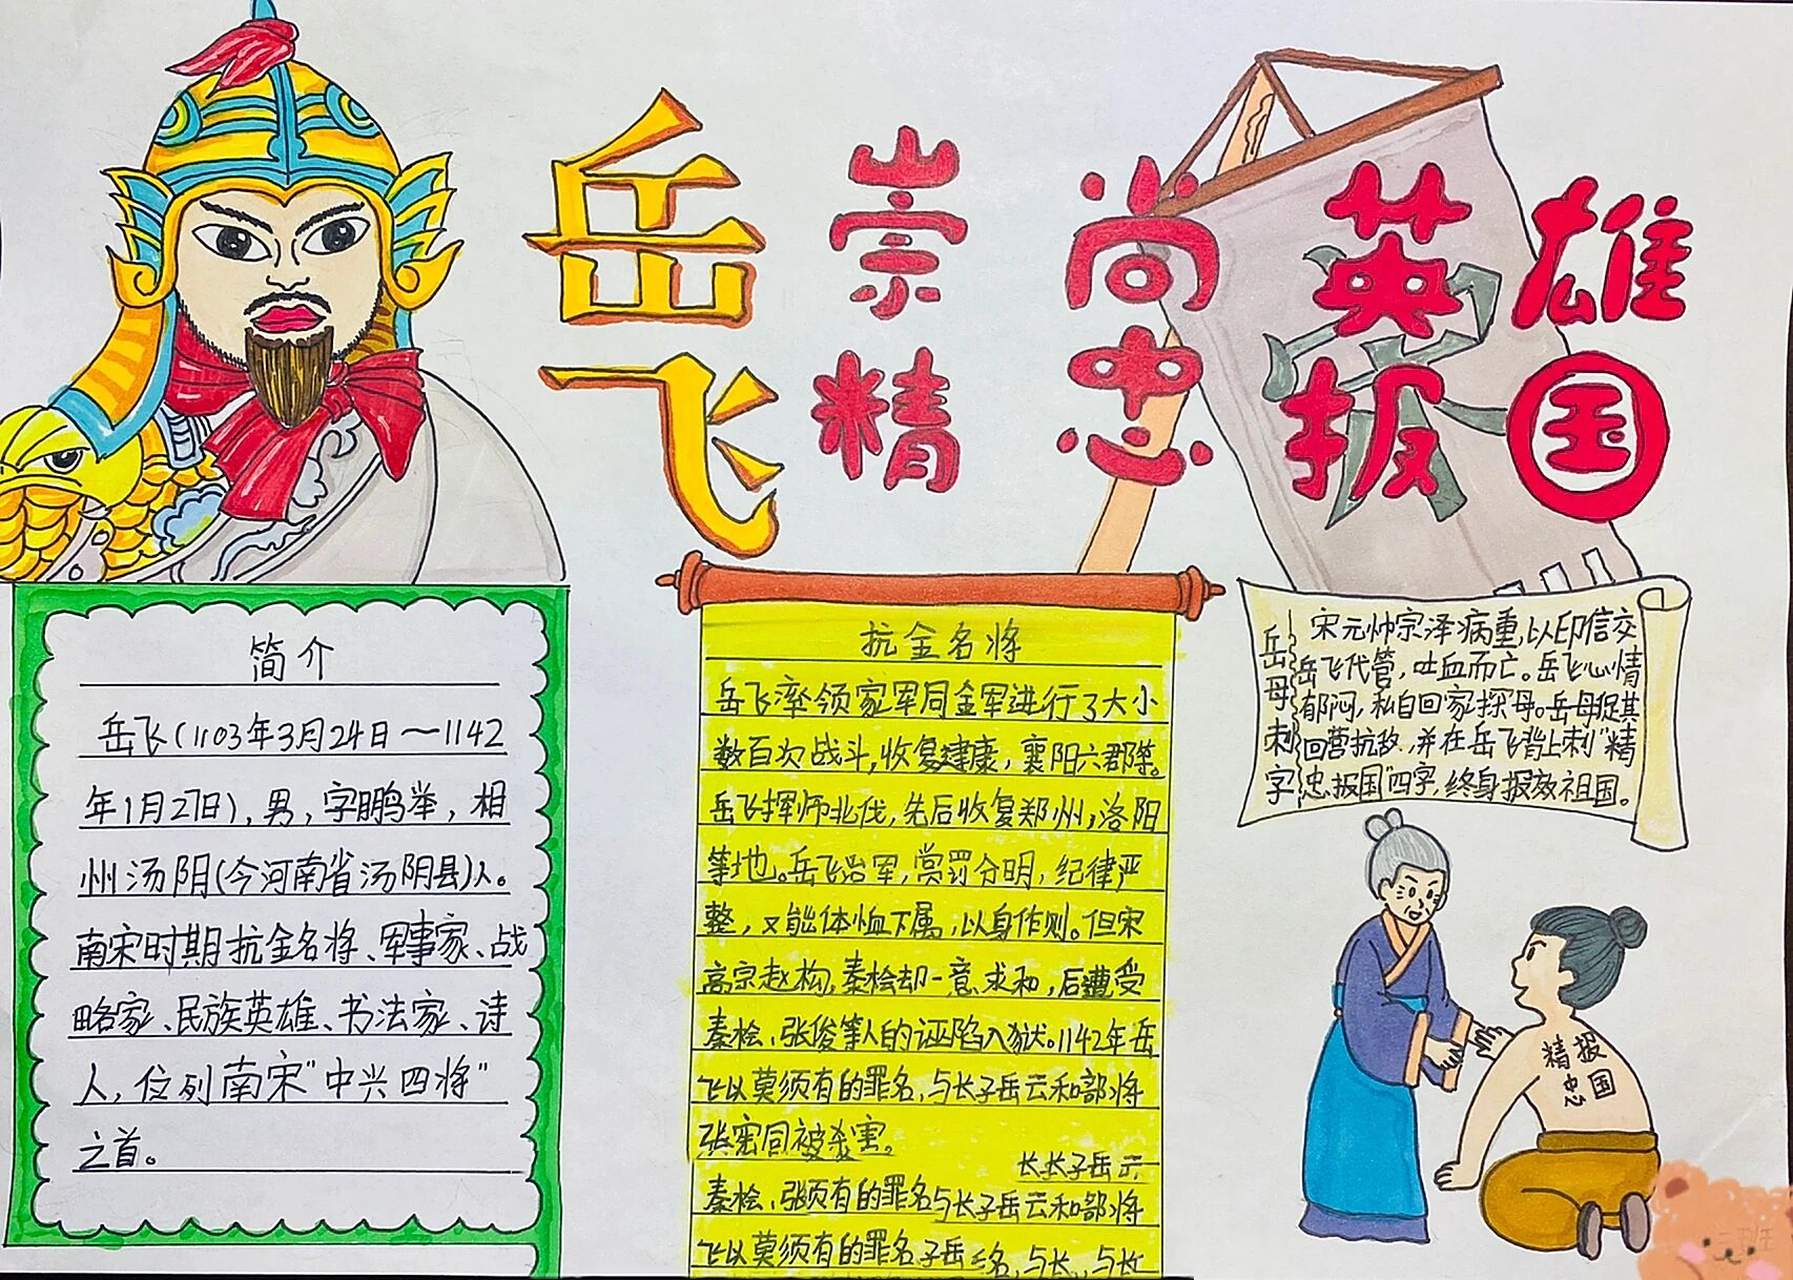 岳飞
崇尚英雄
精忠报国
岳
简介
岳飞(1103年3月24日~1142
年1月27日),男,字鹏举,相
州汤阴(今河南省汤阴县)人。
南宋时期抗金名将、军事家、战
略家、民族英雄、书法家、诗
人,位列南宋"中兴四将"
之首。
抗金名将
岳飞率领家军同金军进行了大小
数百次战斗,收复建康,襄阳六郡等。
岳飞挥师北伐,先后收复郑州,洛阳
等地。岳飞治军,赏罚分明,纪律严
整,又能体恤下属,以身作则。但宋
高宗赵构,秦桧却一意求和,后遭受
秦桧、张俊等人的诬陷入狱。1142年岳
飞以莫须有的罪名,与长子岳云和部将
张宪同被杀害。
长长子岳云
秦桧、张须有的罪名与长子岳云和部将
飞以莫须有的罪名子岳名,与长,与长
岳母刺字
宋元帅宗泽病重,以印信交
岳飞代管,吐血而亡。岳飞心情
郁闷,私自回家探母。岳母促其
回营抗敌,并在岳飞背上刺"精
忠报国"四字,终身报效祖国。
精忠
报国